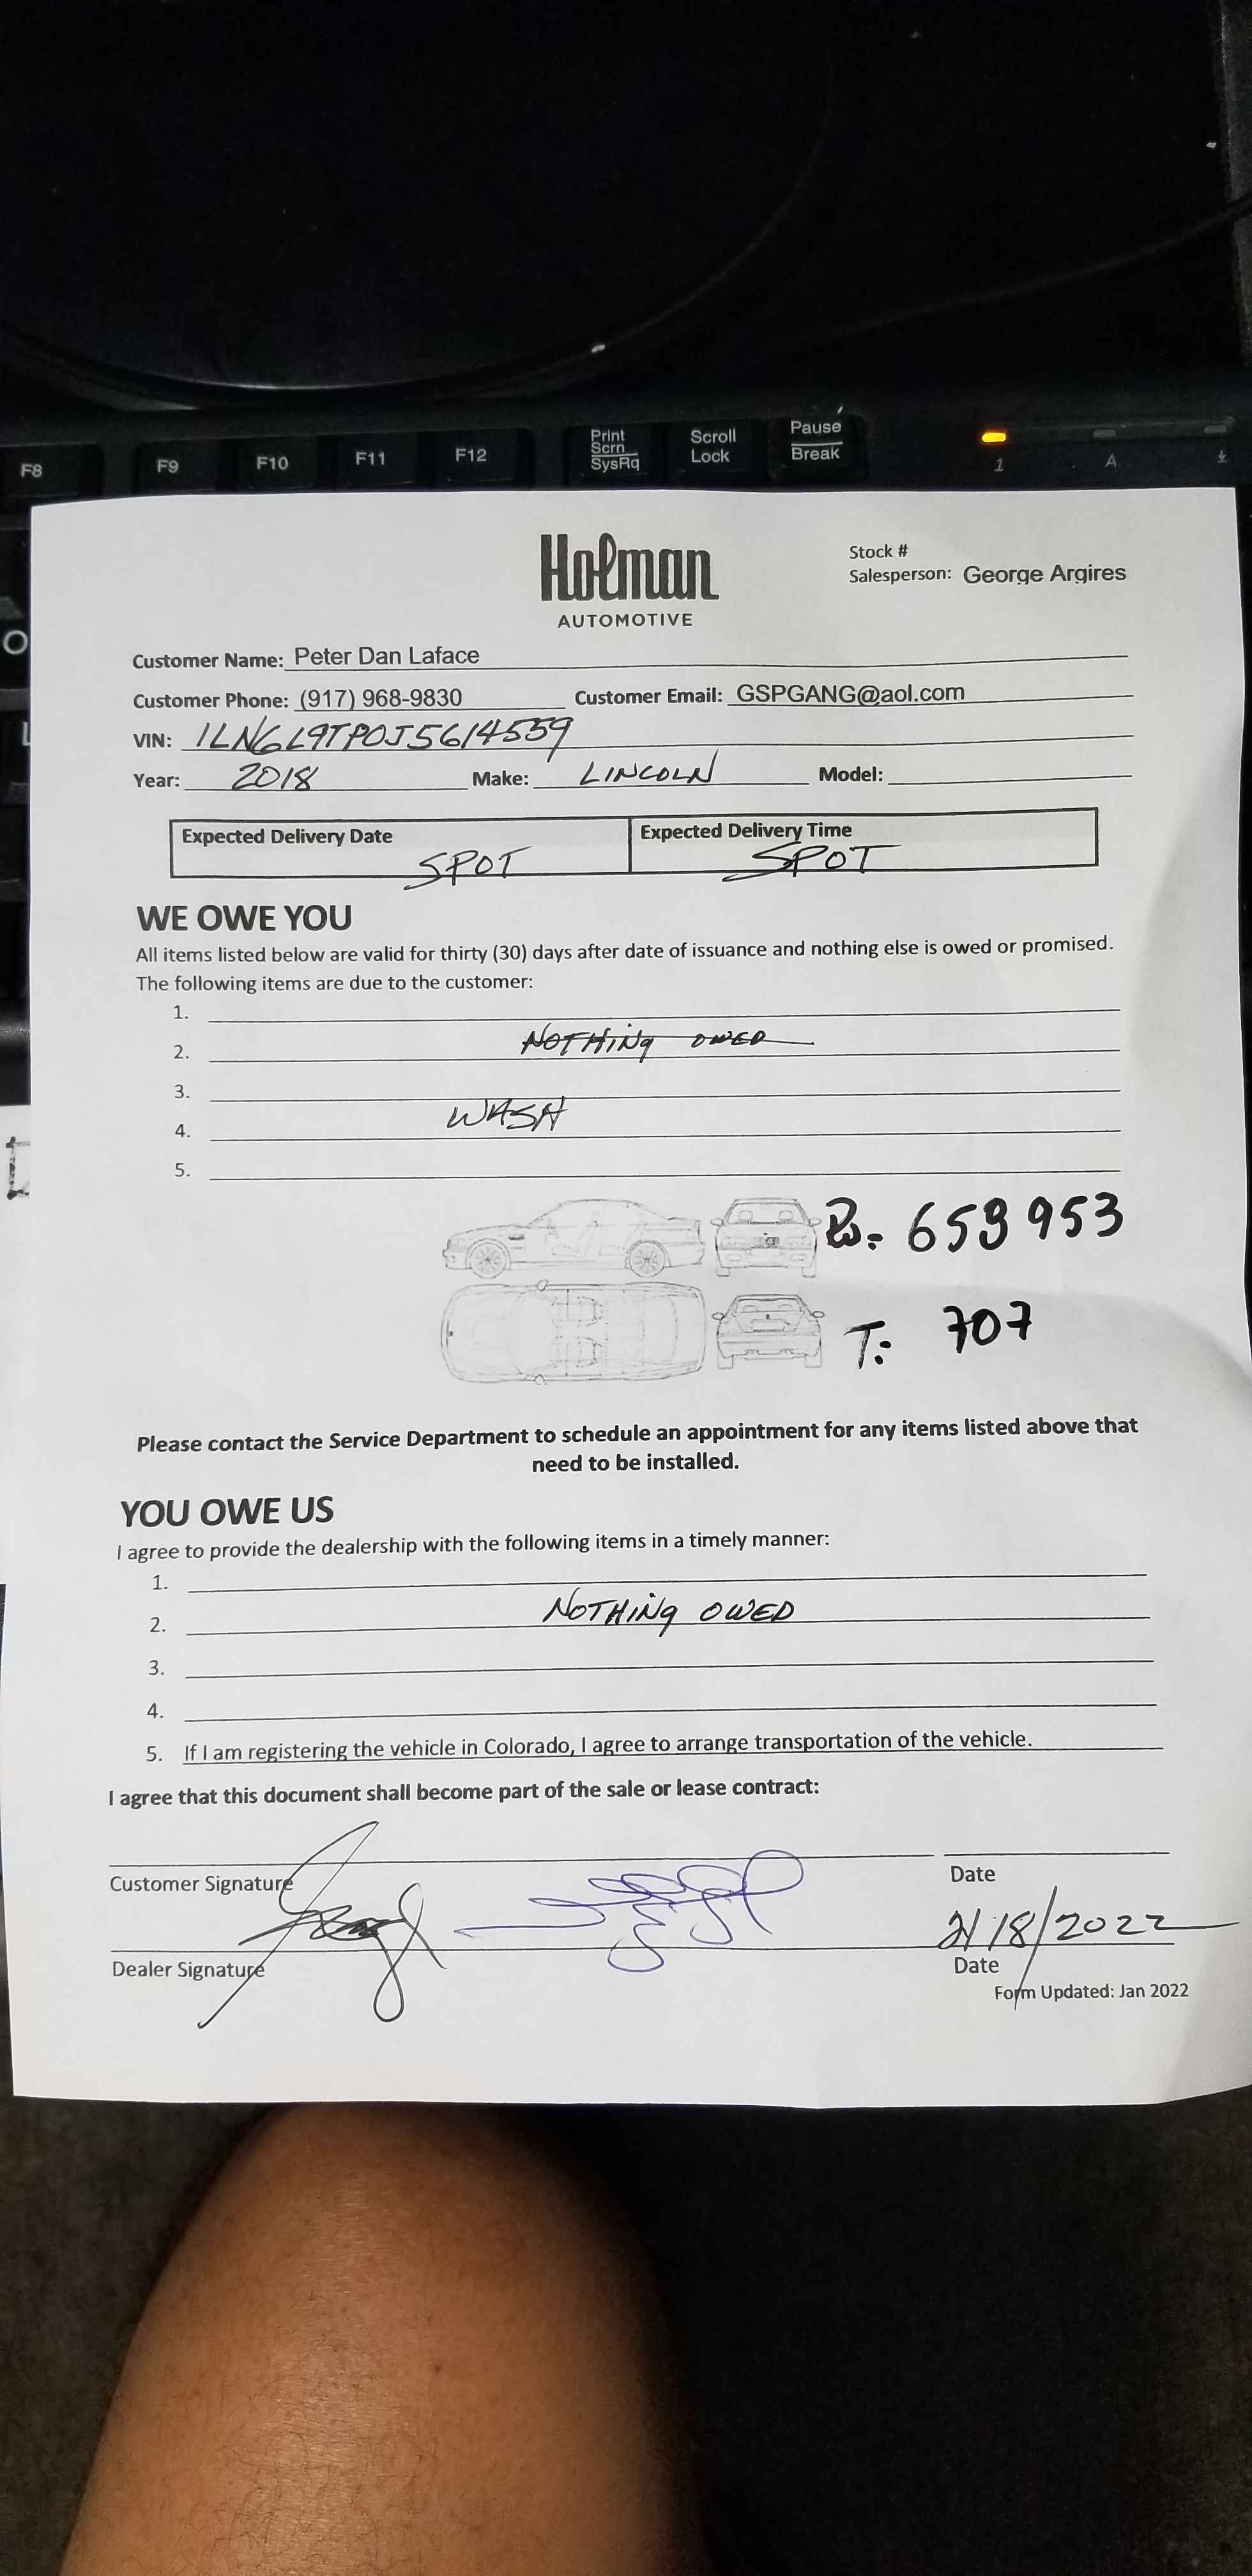 Print Scrn SysRq
Scroll Lock
Pause Break
F8 F9 F10 F11 F12
1 A
Holman
AUTOMOTIVE
Stock #
Salesperson: George Argires
Customer Name: Peter Dan Laface
Customer Phone: (917) 968-9830 Customer Email: GSPGANG@aol.com
VIN: 1LN6L9TP0J5614559
Year: 2018 Make: LINCOLN Model:
Expected Delivery Date SPOT
Expected Delivery Time SPOT
WE OWE YOU
All items listed below are valid for thirty (30) days after date of issuance and nothing else is owed or promised.
The following items are due to the customer:
1.
2. NOTHING OWED
3.
4. WASH
5.
B: 659953
T: 707
Please contact the Service Department to schedule an appointment for any items listed above that
need to be installed.
YOU OWE US
I agree to provide the dealership with the following items in a timely manner:
1.
2. NOTHING OWED
3.
4.
5. If I am registering the vehicle in Colorado, I agree to arrange transportation of the vehicle.
I agree that this document shall become part of the sale or lease contract:
Customer Signature Date
2/18/2022
Dealer Signature Date
Form Updated: Jan 2022